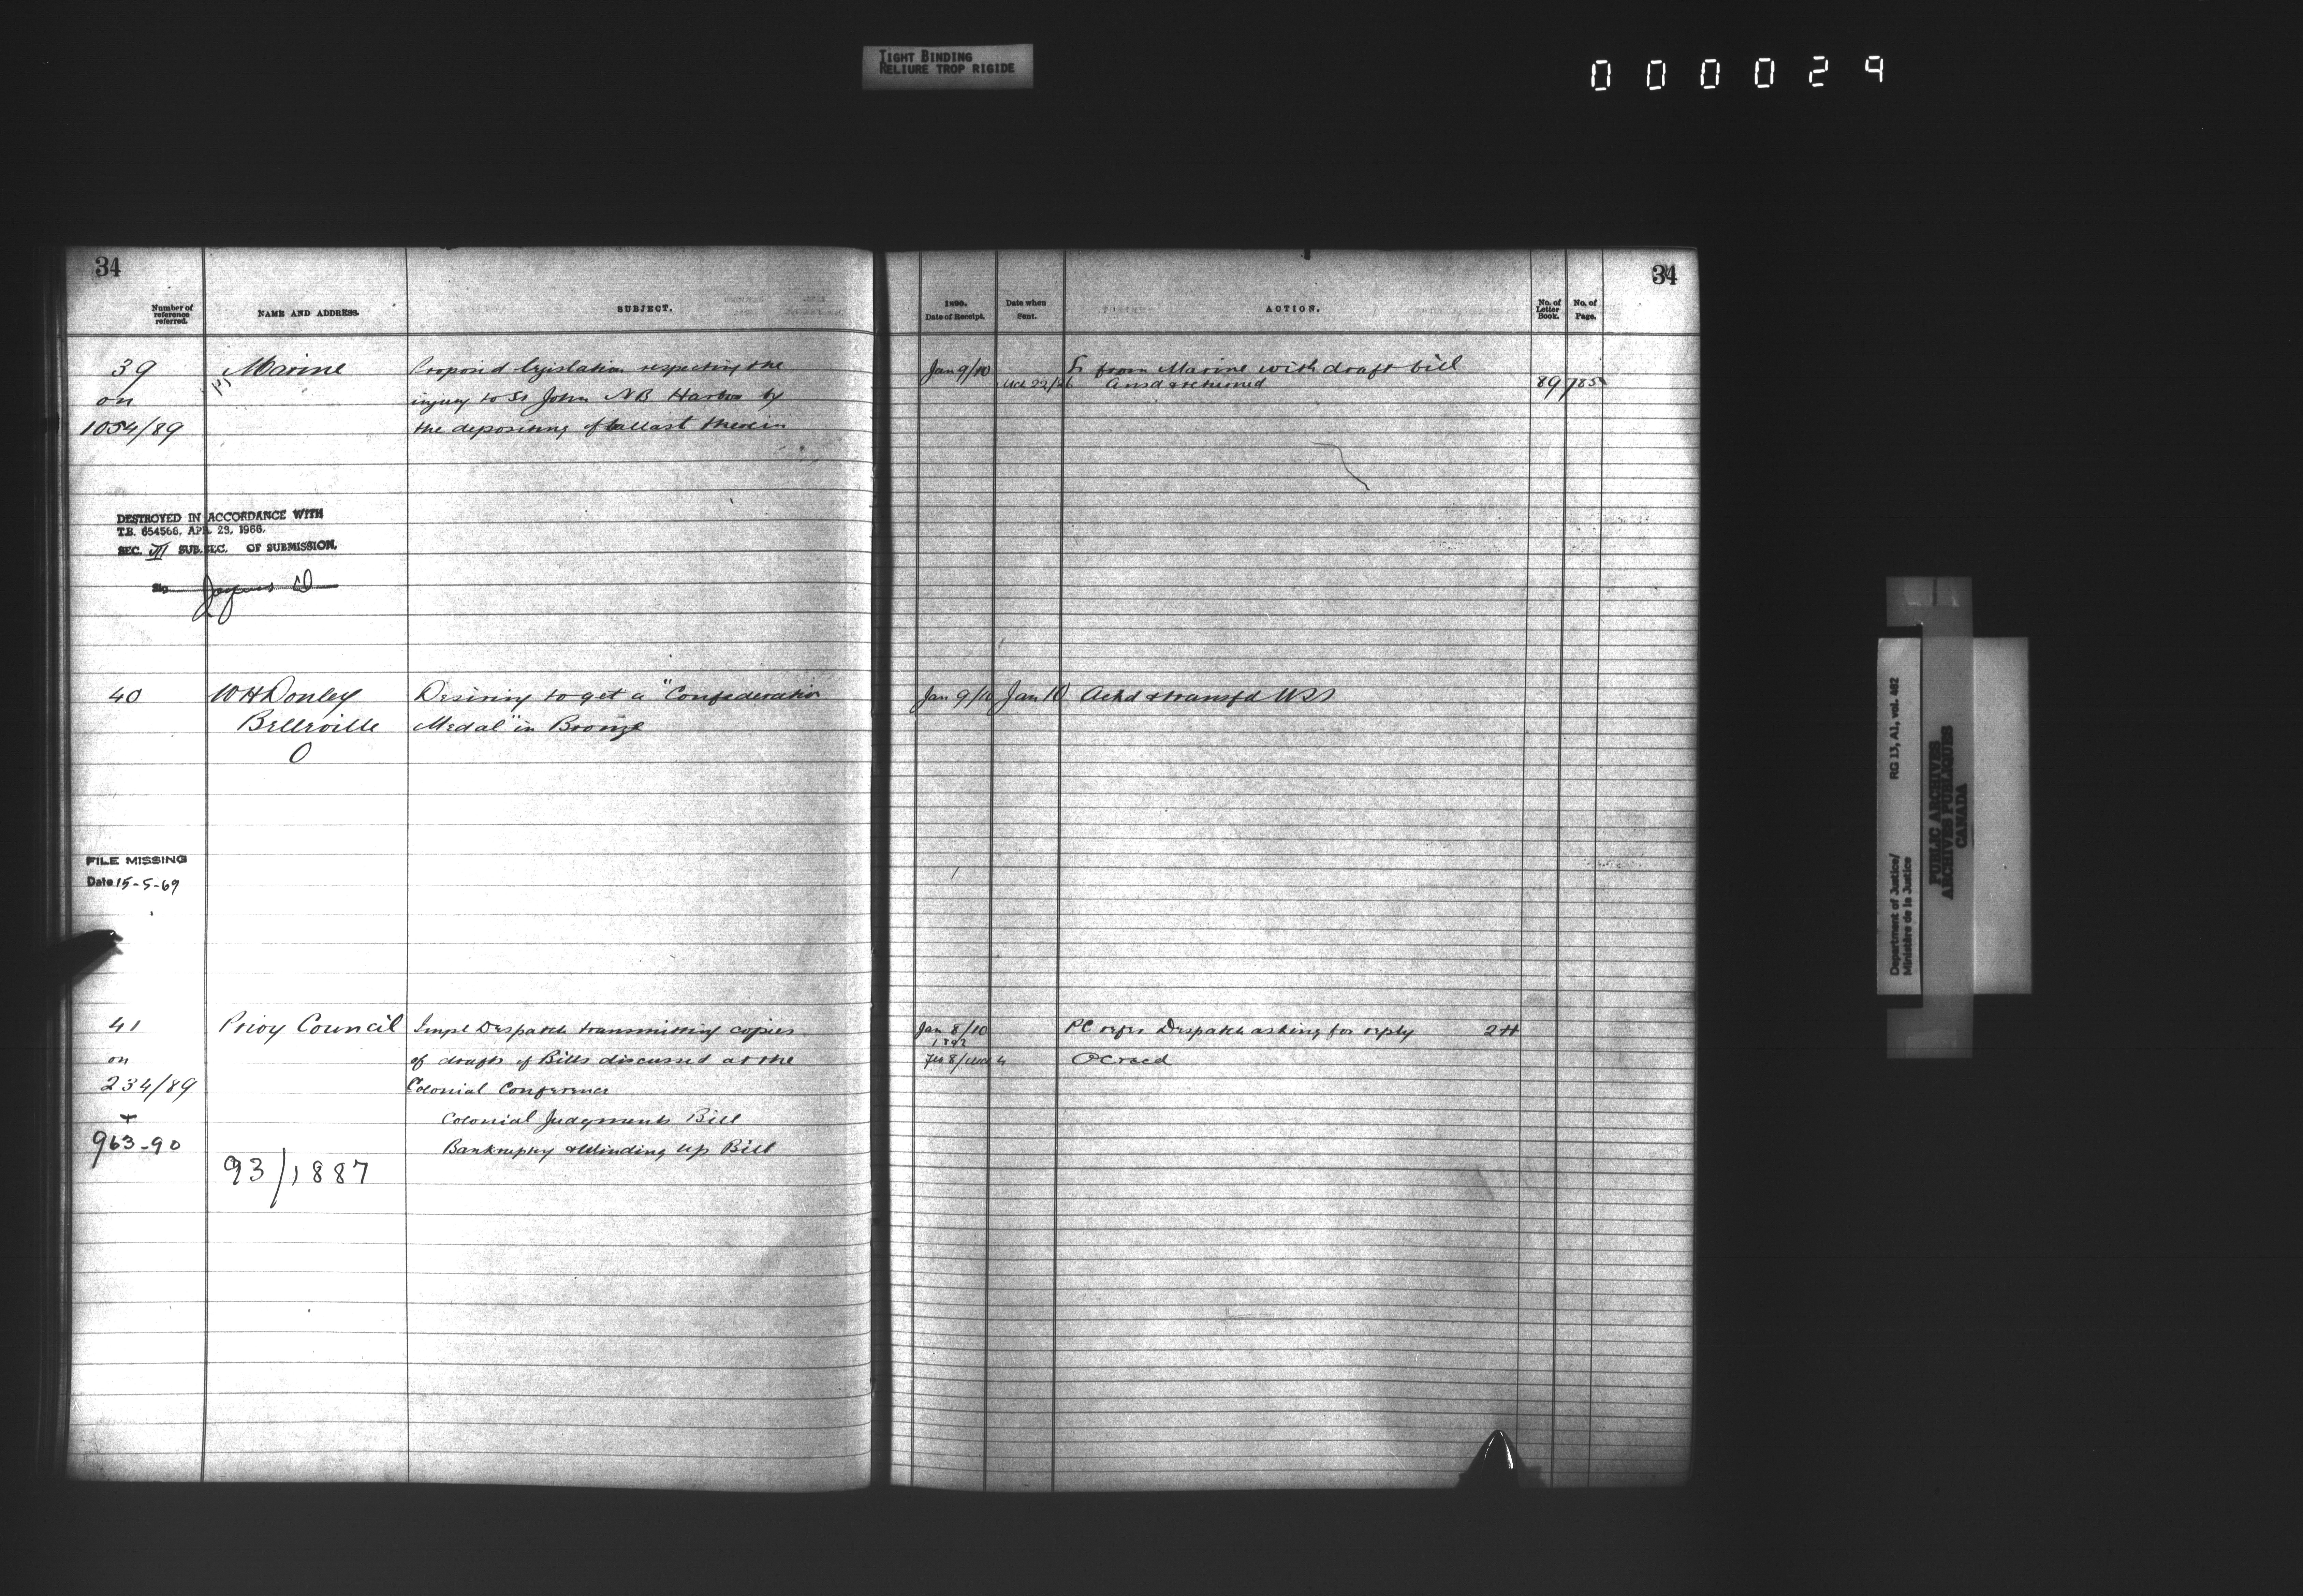 TIGHT BINDING
RELIURE TROP RIGIDE
000029
34
Number of reference referred.
NAME AND ADDRESS.
SUBJECT.
39
on
1054/89
Marine
Proposed legislation respecting the
injury to St John NB Harbor by
the depositing of ballast therein
DESTROYED IN ACCORDANCE WITH
T.B. 654566, APR. 23, 1966.
SEC. VI SUB. SEC. OF SUBMISSION.
40
W H Donley
Belleville
O
Desiring to get a "Confederation
Medal" in Bronze
FILE MISSING
Date 15-5-69
41
on
234/89
+
963-90
Privy Council
93/1887
Impl Despatch transmitting copies
of drafts of Bills discussed at the
Colonial Conference
Colonial Judgments Bill
Bankruptcy & Winding Up Bill
34
1890.
Date of Receipt.
Date when Sent.
ACTION.
No. of Letter Book.
No. of Page.
Jan 9/10 L from Marine with draft bill
Ansd & returned 89 785
Jan 9/10 Jan 10 Ackd & transfd USS
Jan 8/10 PC refer Despatch asking for reply 2H
1892
Feb 8/ OC recd
Department of Justice/ RG 13, A1, vol. 482
Ministère de la Justice
PUBLIC ARCHIVES
ARCHIVES PUBLIQUES
CANADA